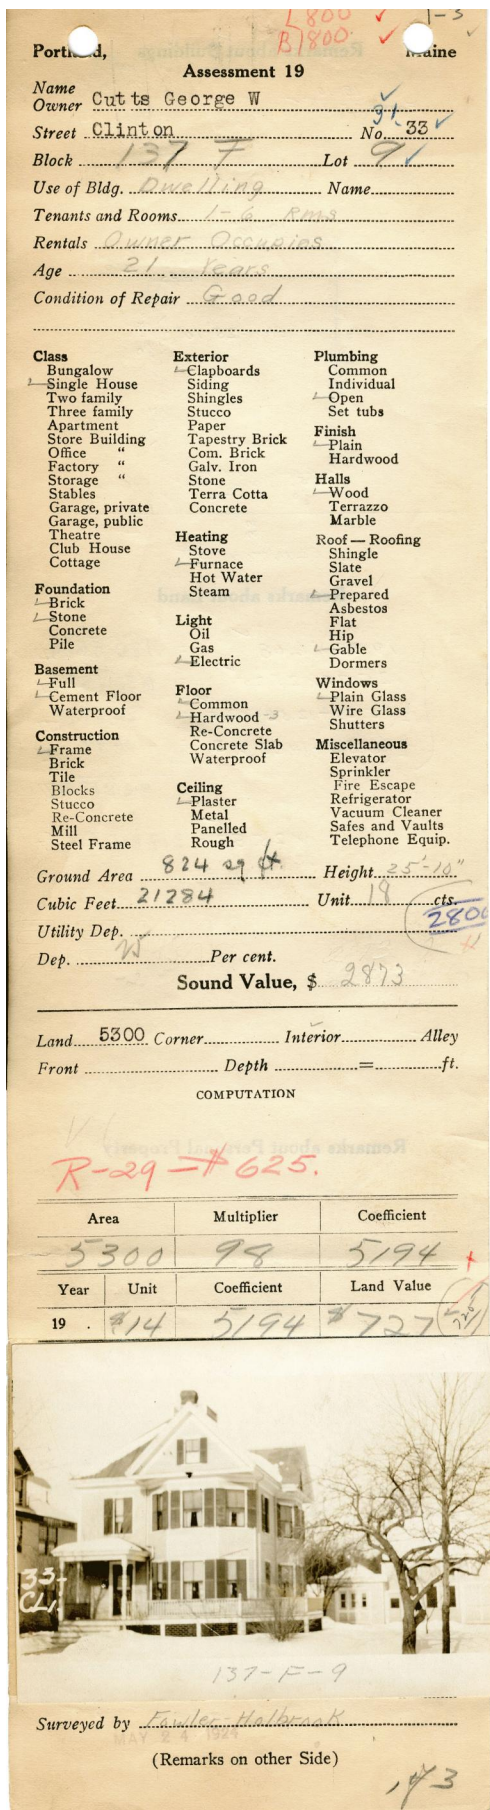 L 800 ✓ 1-3
B 1800 ✓ ✓
Portland, Maine
Assessment 19
Name
Owner Cutts George W
91.
Street Clinton No. 33 ✓
Block 137 F Lot 9 ✓
Use of Bldg. Dwelling Name
Tenants and Rooms 1-6 Rms
Rentals Owner Occupies
Age 21 Years
Condition of Repair Good
Class
Bungalow
✓ Single House
Two family
Three family
Apartment
Store Building
Office "
Factory "
Storage "
Stables
Garage, private
Garage, public
Theatre
Club House
Cottage
Foundation
✓ Brick
✓ Stone
Concrete
Pile
Basement
✓ Full
✓ Cement Floor
Waterproof
Construction
✓ Frame
Brick
Tile
Blocks
Stucco
Re-Concrete
Mill
Steel Frame
Exterior
✓ Clapboards
Siding
Shingles
Stucco
Paper
Tapestry Brick
Com. Brick
Galv. Iron
Stone
Terra Cotta
Concrete
Heating
Stove
✓ Furnace
Hot Water
Steam
Light
Oil
Gas
✓ Electric
Floor
✓ Common
✓ Hardwood -3
Re-Concrete
Concrete Slab
Waterproof
Ceiling
✓ Plaster
Metal
Panelled
Rough
Plumbing
Common
Individual
✓ Open
Set tubs
Finish
✓ Plain
Hardwood
Halls
✓ Wood
Terrazzo
Marble
Roof — Roofing
Shingle
Slate
Gravel
✓ Prepared
Asbestos
Flat
Hip
✓ Gable
Dormers
Windows
✓ Plain Glass
Wire Glass
Shutters
Miscellaneous
Elevator
Sprinkler
Fire Escape
Refrigerator
Vacuum Cleaner
Safes and Vaults
Telephone Equip.
Ground Area 824 sq ft. Height 25'-10"
Cubic Feet 21284 Unit 18 cts.
2800
Utility Dep.
Dep. 25 Per cent.
Sound Value, $ 2873
Land 5300 Corner Interior Alley
Front Depth = ft.
COMPUTATION
R-29 - $625.
Area Multiplier Coefficient
5300 98 5194
Year Unit Coefficient Land Value
19 . $14 5194 $727
33-
CLI.
137-F-9
Surveyed by Fowler-Holbrook
MAY 24 1924
(Remarks on other Side)
173